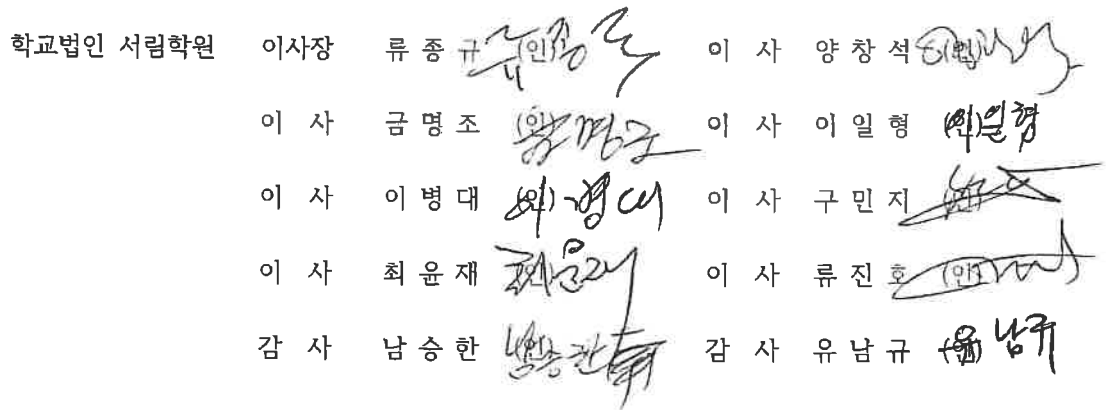 학교법인 서림학원 이사장 류종규 (인) 이 사 양창석 (인)
이 사 금명조 (인) 이 사 이일형 (인)
이 사 이병대 (인) 이 사 구민지 (인)
이 사 최윤재 (인) 이 사 류진호 (인)
감 사 남승한 (인) 감 사 유남규 (인)